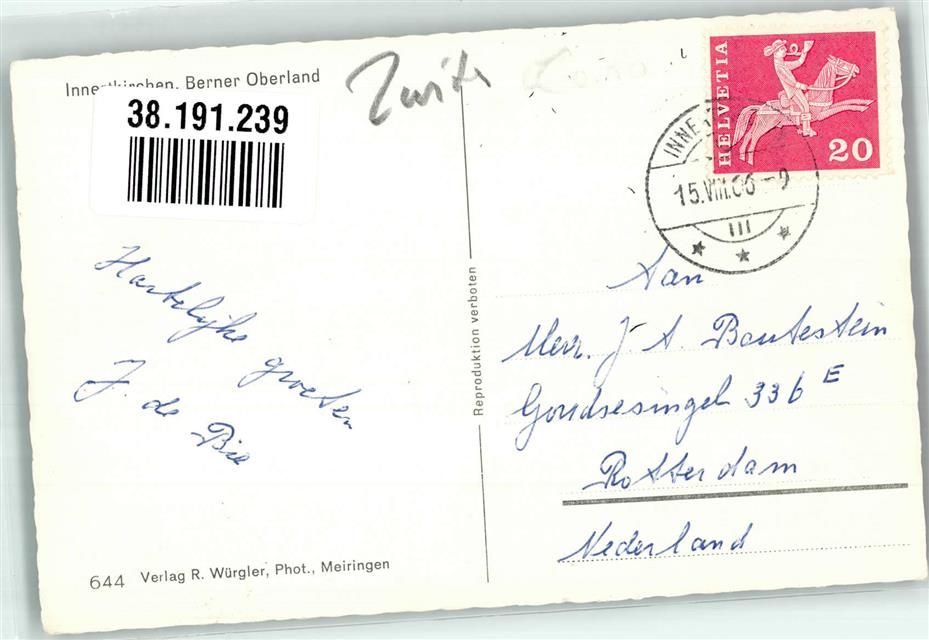 Innertkirchen, Berner Oberland
38.191.239
Hartelijke groeten
J. de Bie
644 Verlag R. Würgler, Phot., Meiringen
Reproduktion verboten
HELVETIA
20
INNE
15.VIII.66-9
Aan
Mevr. J. A. Boutestein
Goudsesingel 336 E
Rotterdam
Nederland